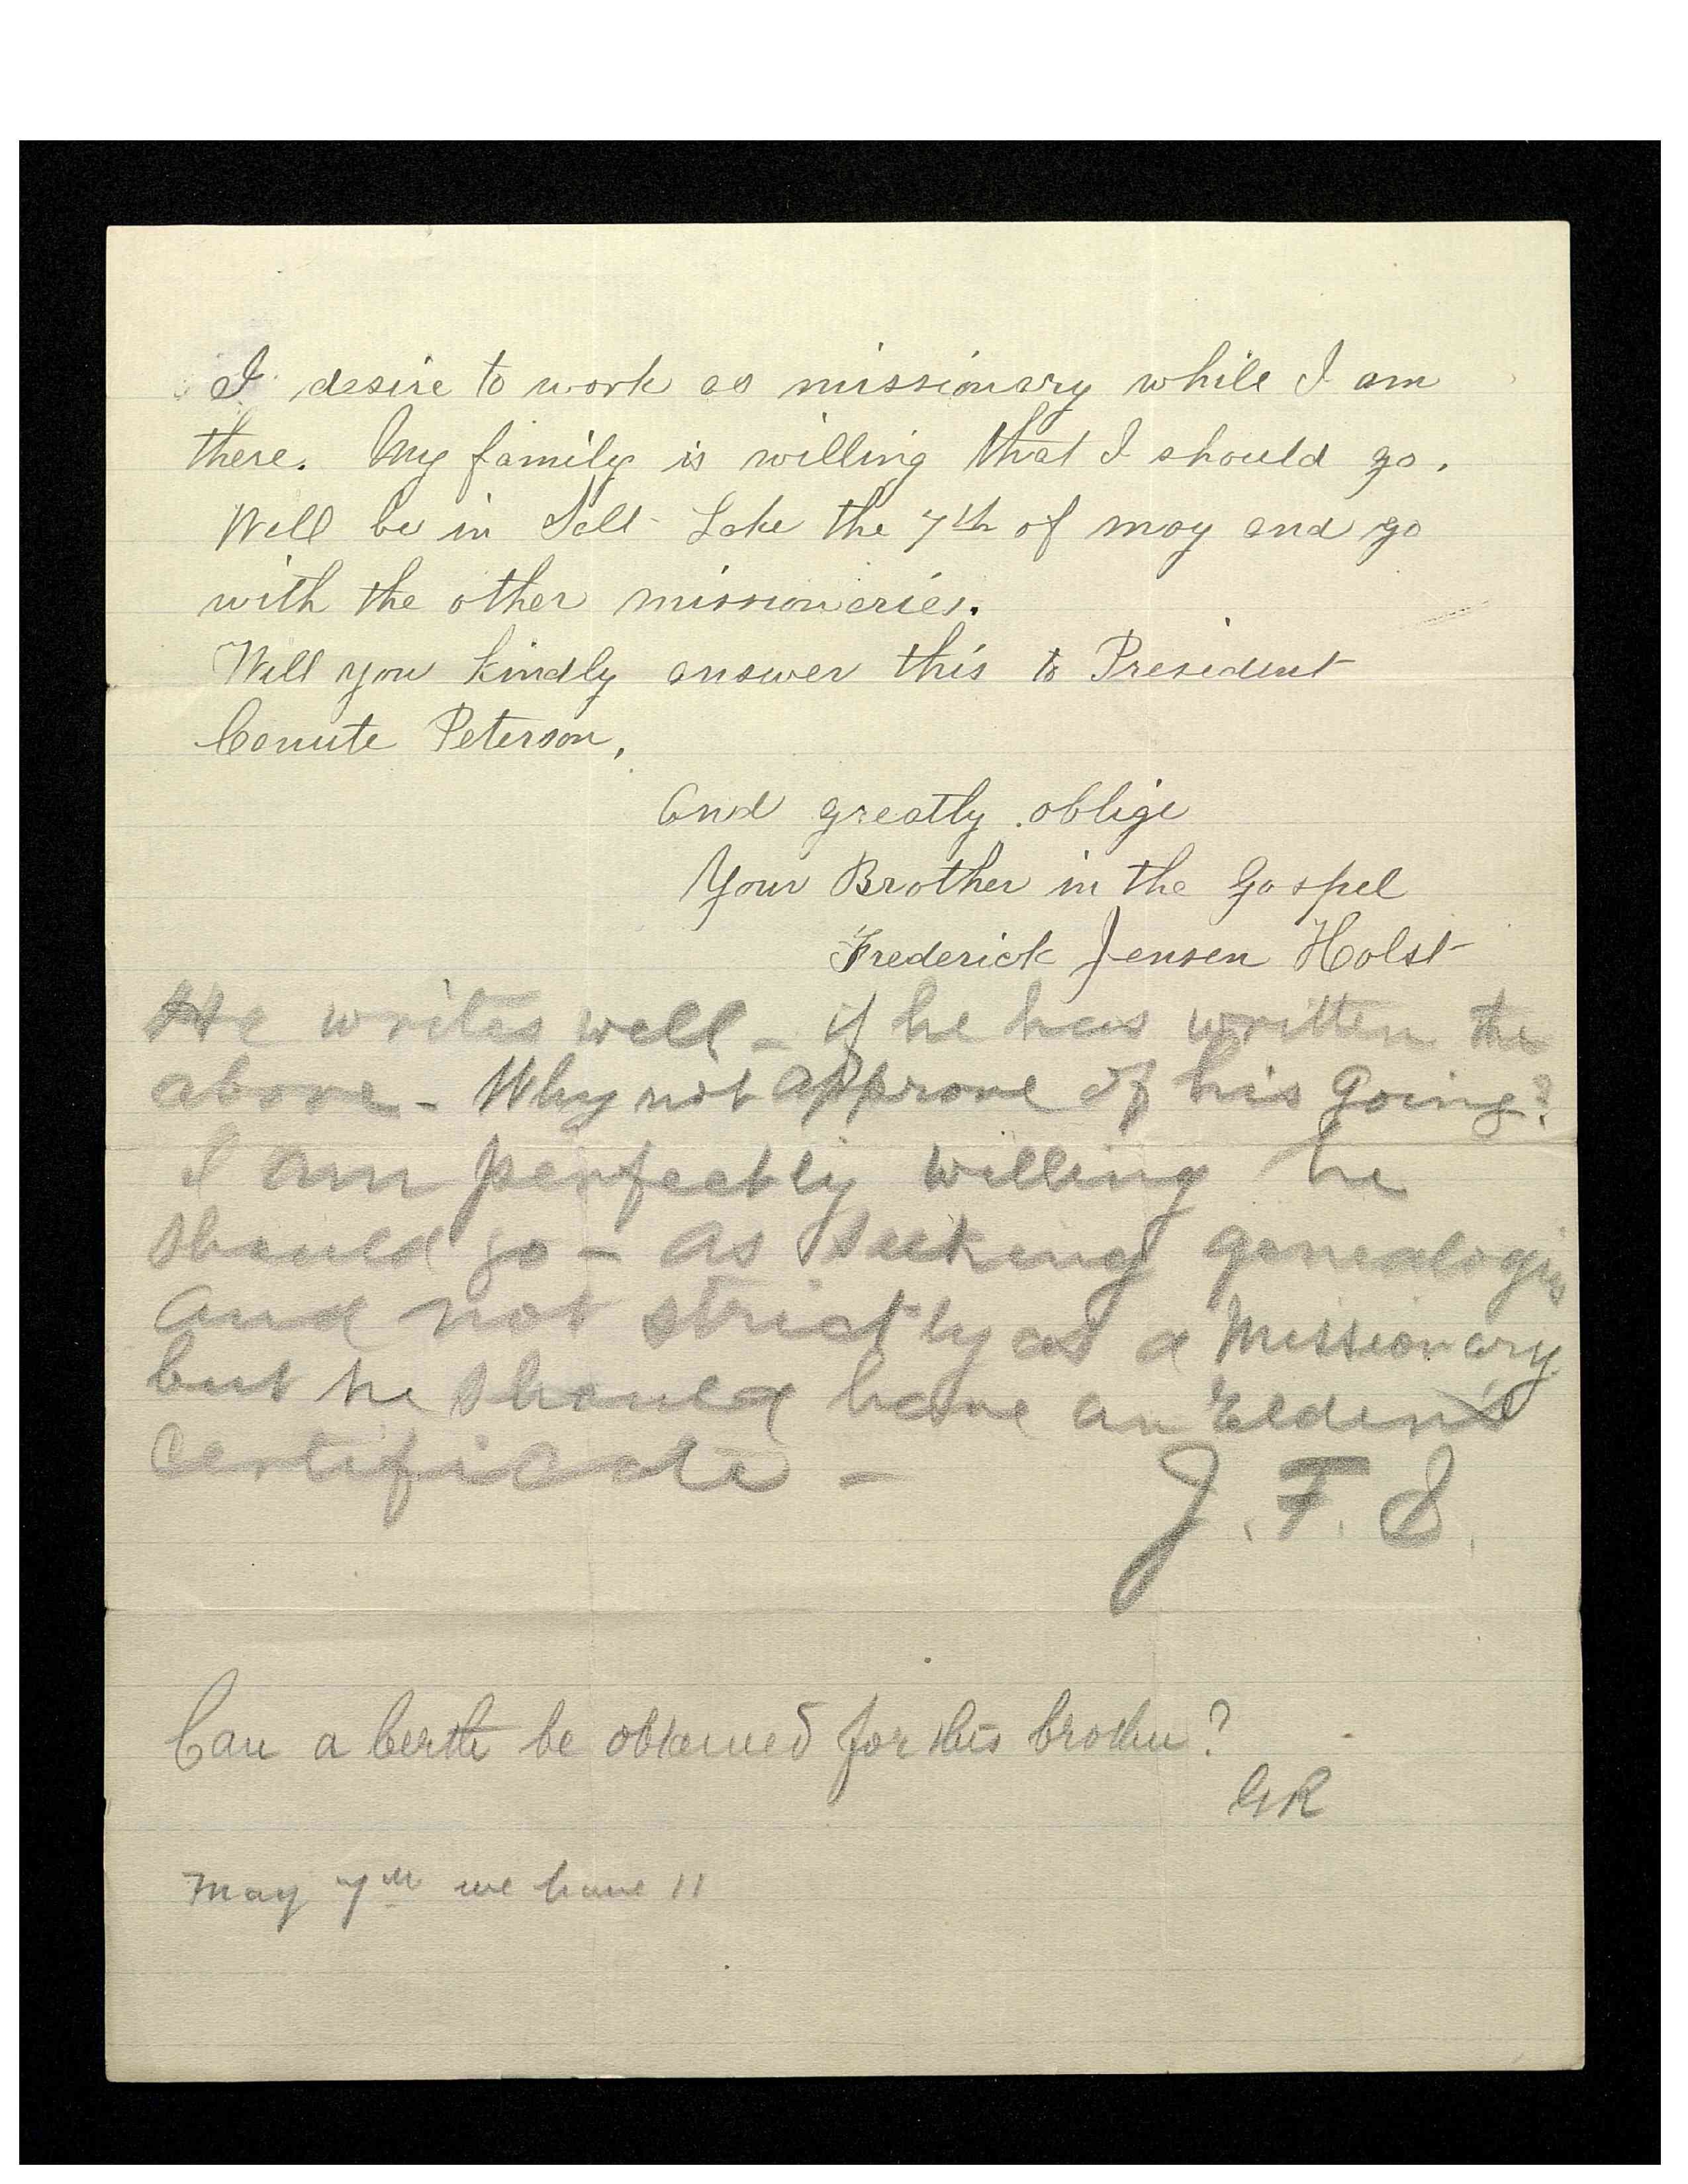 I desire to work as missionary while I am
there. My family is willing that I should go.
Will be in Salt Lake the 7th of may and go
with the other missionaries.
Will you kindly answer this to President
Canute Peterson,
And greatly oblige
Your Brother in the Gospel
Frederick Jensen Holst
He writes well - if he has written the
above - Why not approve of his going?
I am perfectly willing he
should go - as seeking genealogies
and not strictly as a Missionary
but he should have an Elder's
certificate -
J. F. S.
Can a berth be obtained for this brother?
GR
May 7th we have 11